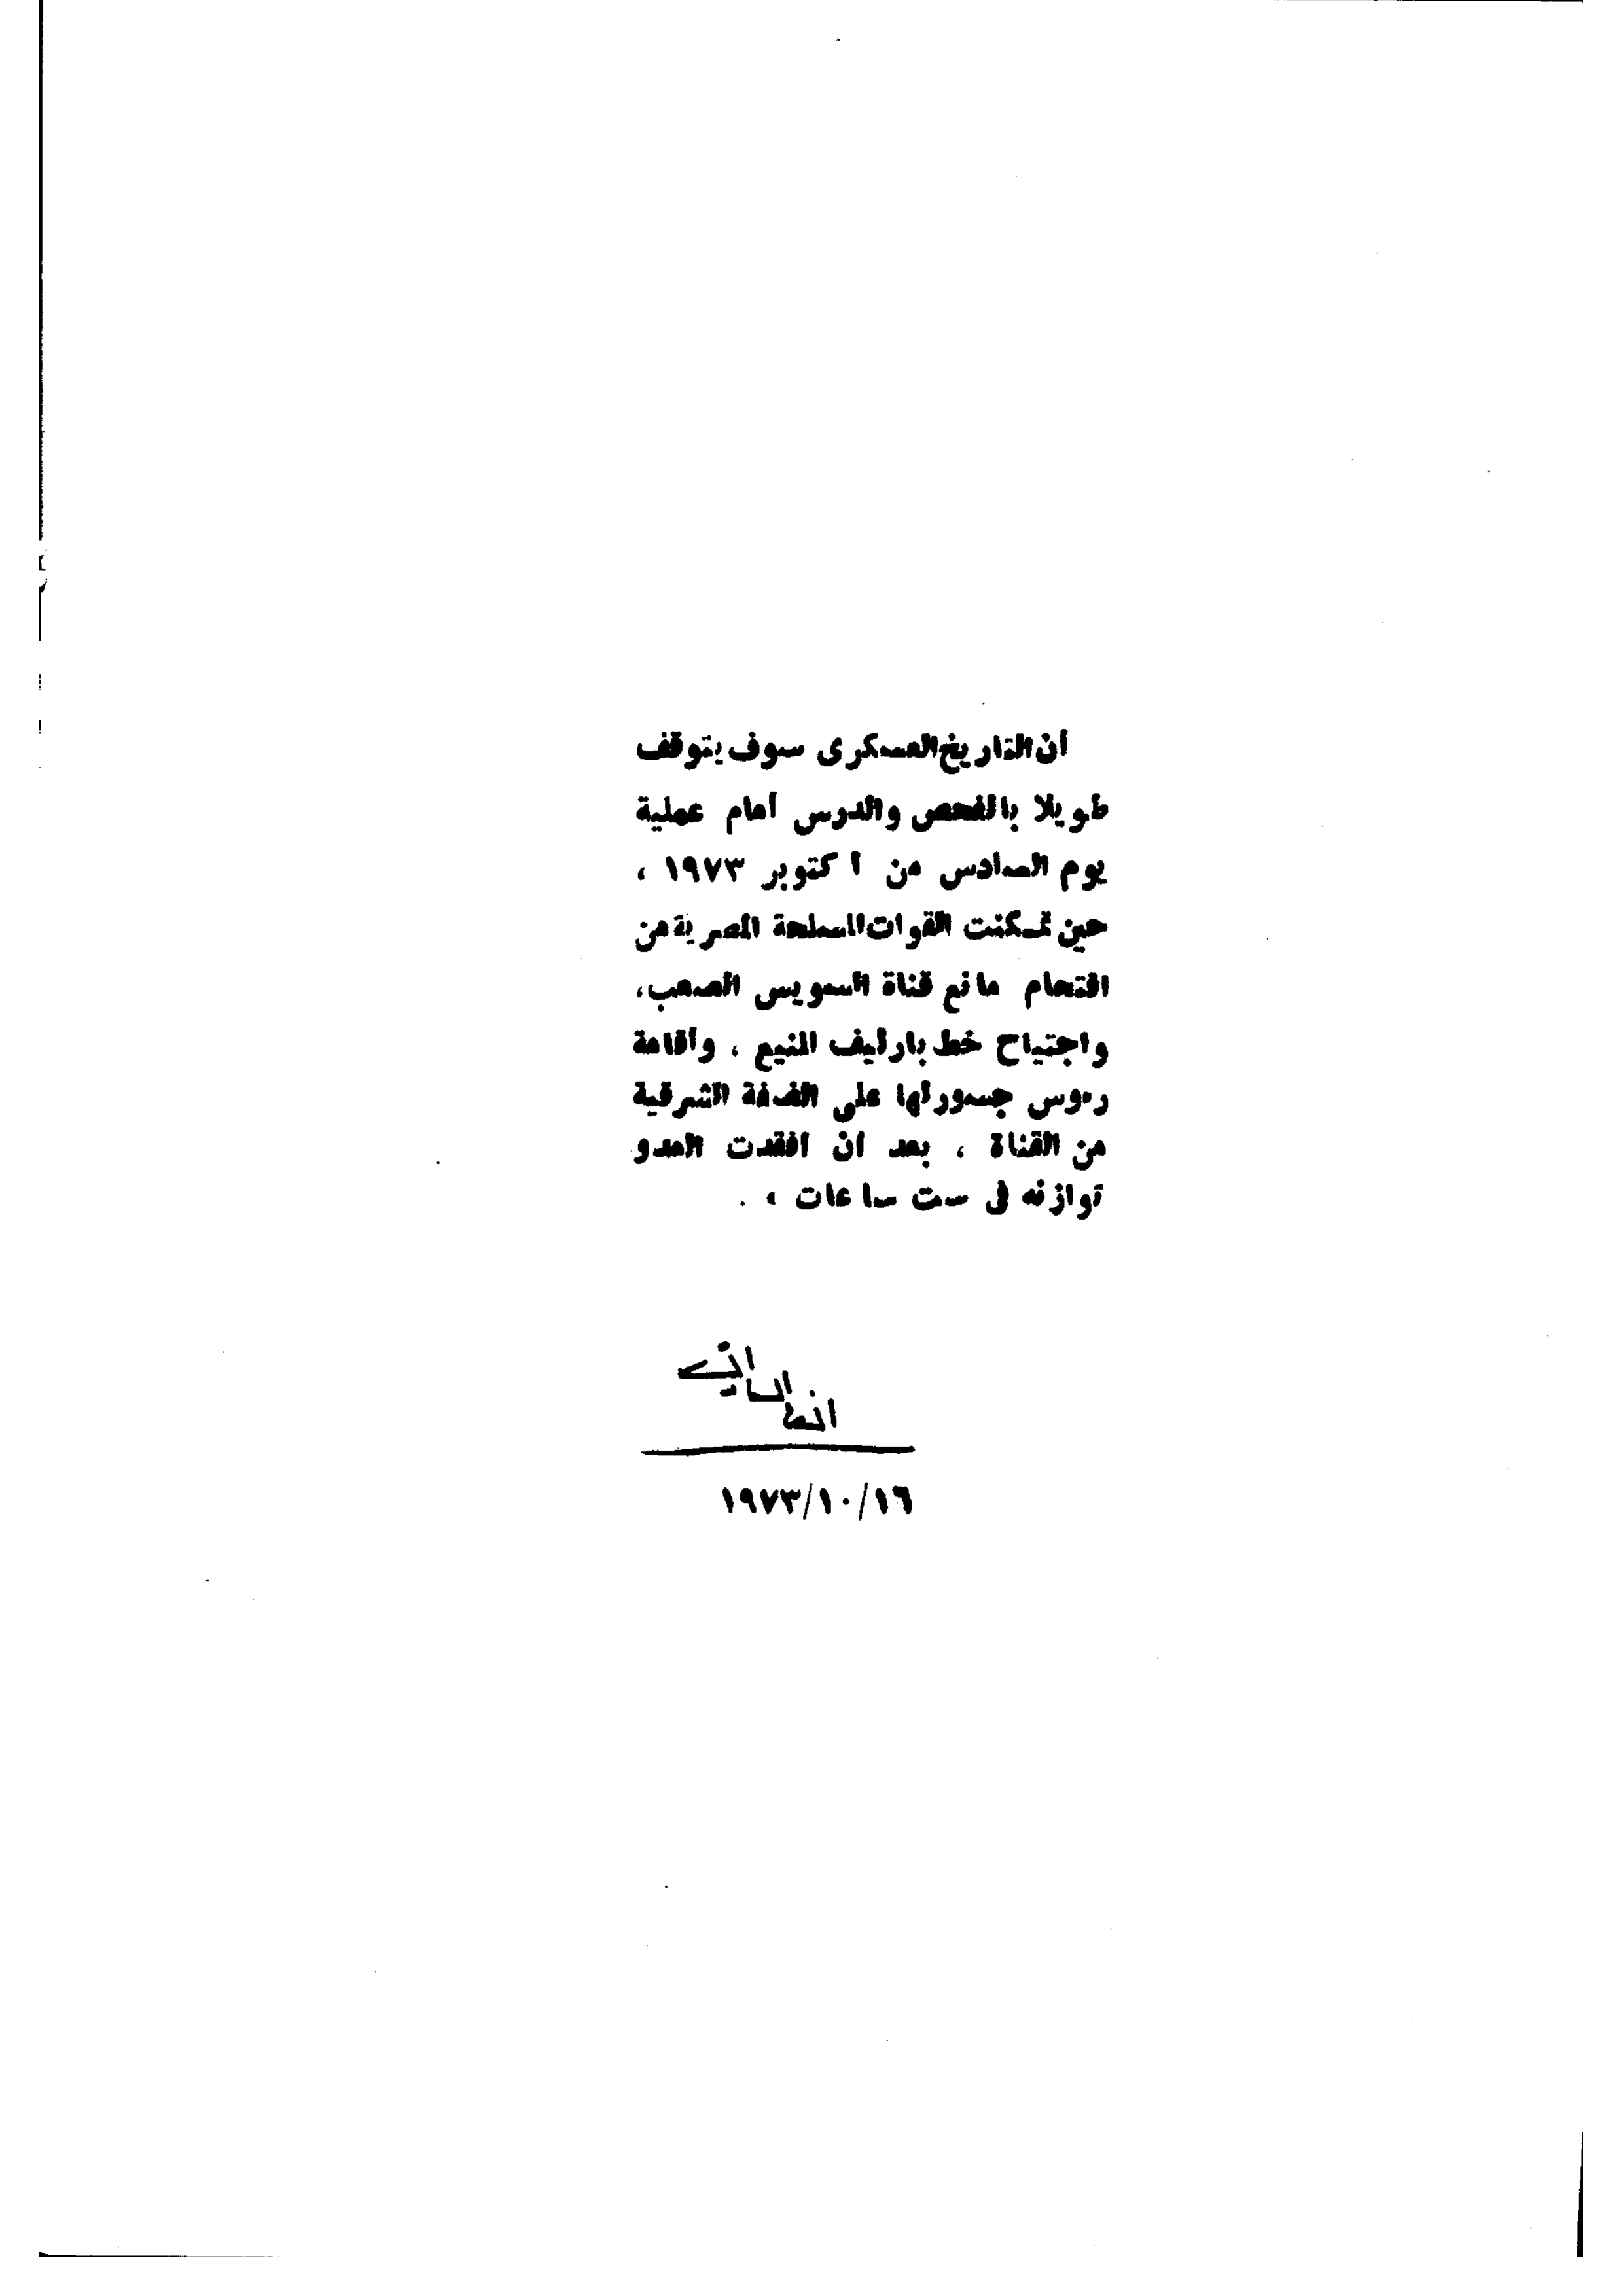 أن التاريخ العسكرى سوف يتوقف
طويلا بالفحص والدرس أمام عملية
يوم السادس من أكتوبر ١٩٧٣ ،
حين تمكنت القوات المسلحة المصرية من
اقتحام مانع قناة السويس الصعب،
واجتياح خط بارليف المنيع ، وأقامة
رءوس جسور لها على الضفة الشرقية
من القناة ، بعد ان افقدت العدو
توازنه فى ست ساعات ، .
١٩٧٣/١٠/١٦